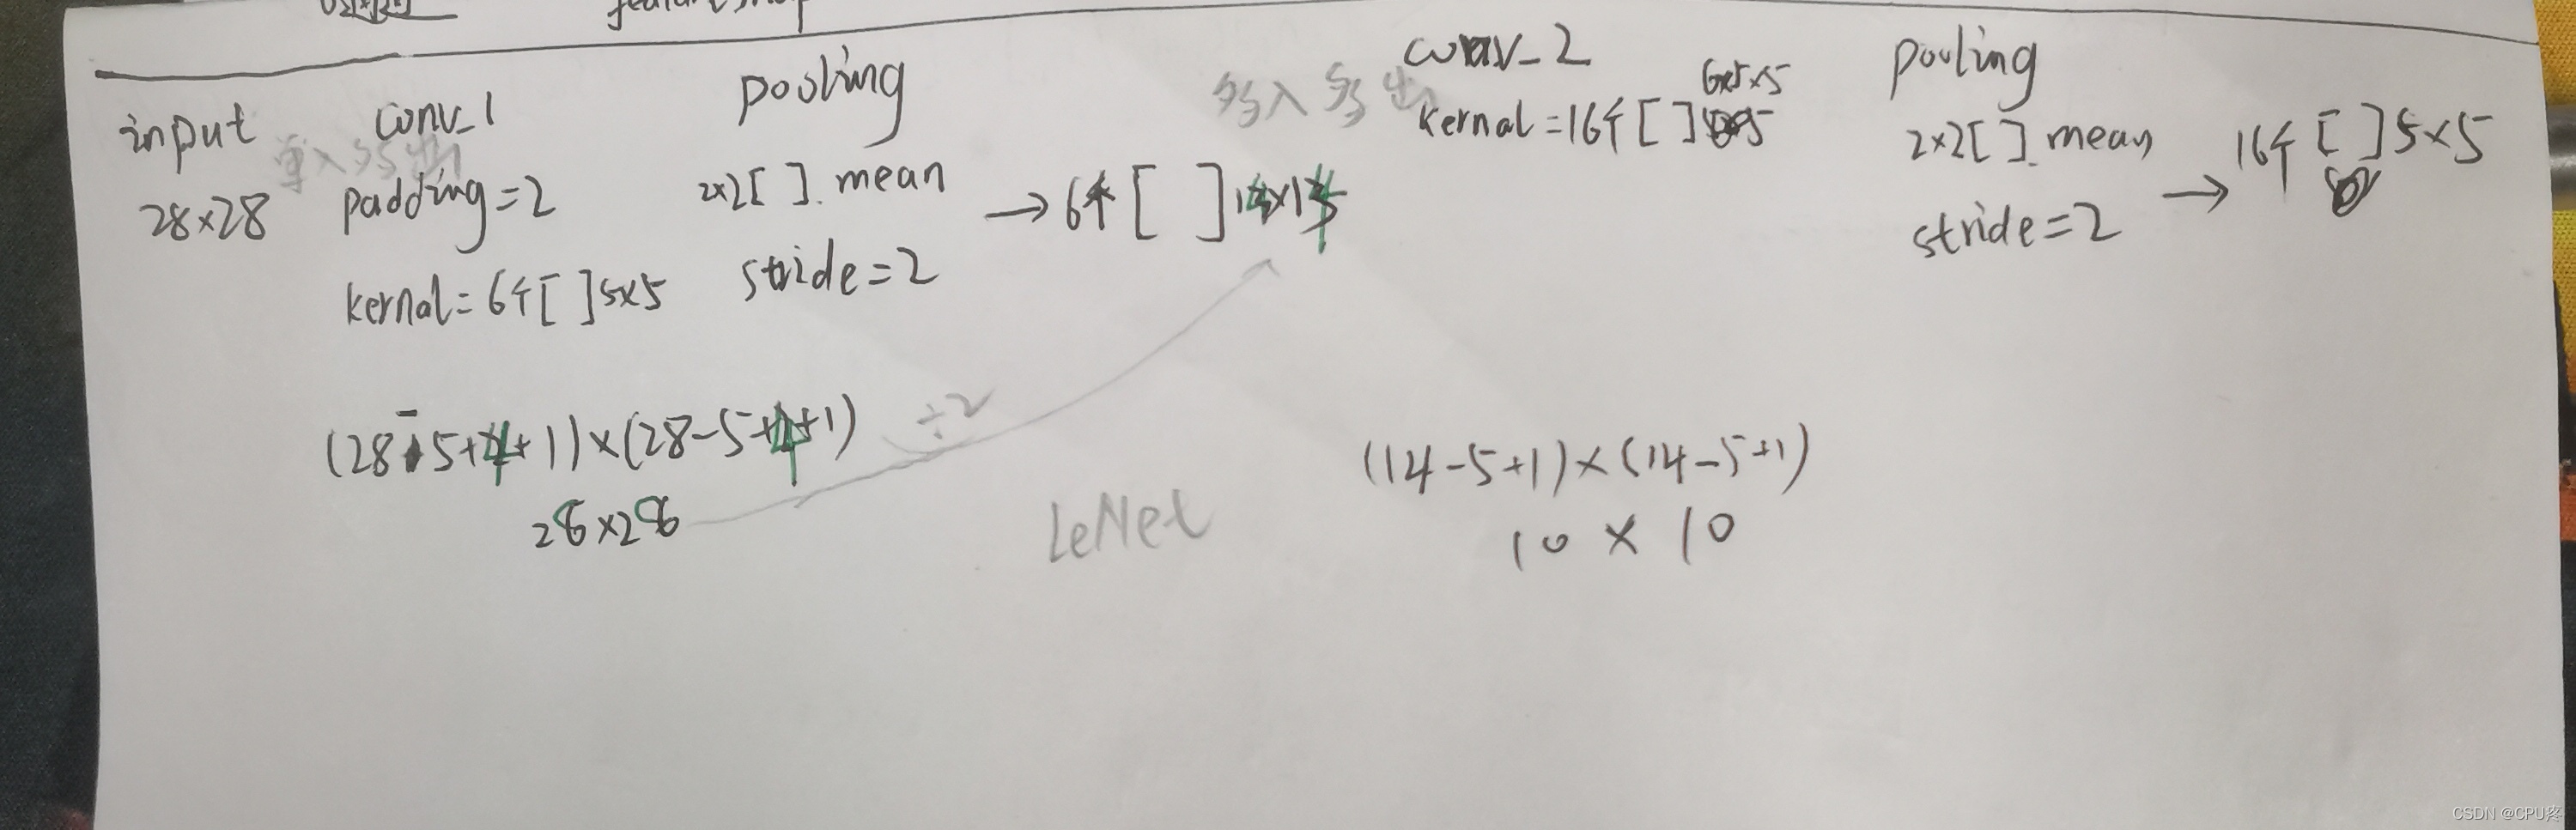 input
28×28
单入多出
conv_1
padding=2
kernal=6个[ ]5×5
pooling
2×2[ ] mean
stride=2
→6个[ ]14×14
多入多出
conv_2
6×5×5
kernal=16个[ ]
pooling
2×2[ ] mean
stride=2
→16个[ ]5×5
(28-5+4+1)×(28-5+4+1)
28×28
÷2
LeNet
(14-5+1)×(14-5+1)
10×10
CSDN @CPU疼